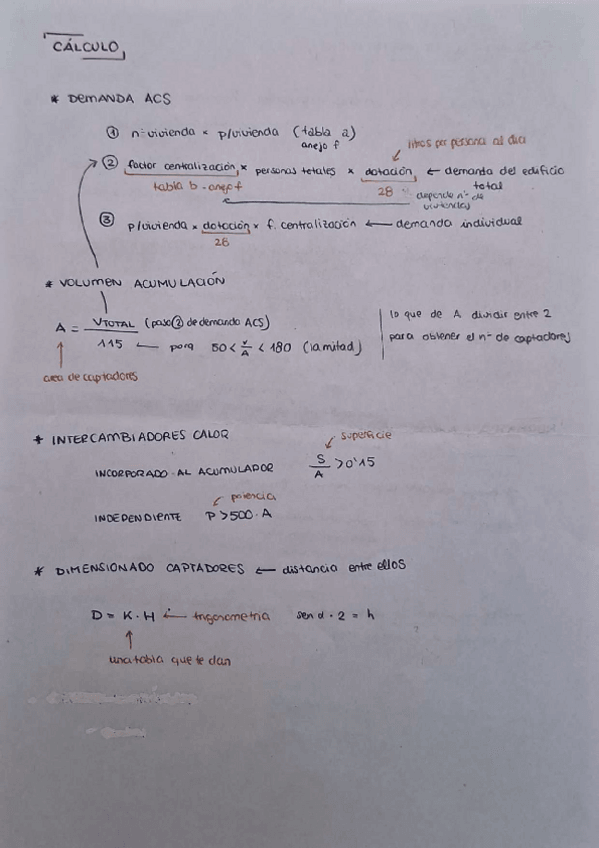 CÁLCULO
* DEMANDA ACS
① nº vivienda × p/vivienda (tabla a)
anejo f
litros por persona al día
② factor centralización × personas totales × dotación ← demanda del edificio
total
tabla b - anejo f
28
depende nº de
viviendas
③ p/vivienda × dotación × f. centralización ← demanda individual
28
* VOLUMEN ACUMULACIÓN
A = VTOTAL (paso ② de demanda ACS)
115 ← para 50 < V/A < 180 (la mitad)
área de captadores
lo que de A dividir entre 2
para obtener el nº de captadores
* INTERCAMBIADORES CALOR
superficie
INCORPORADO AL ACUMULADOR S/A > 0'15
potencia
INDEPENDIENTE P > 500 · A
* DIMENSIONADO CAPTADORES ← distancia entre ellos
D = K · H ← trigonometria sen α · 2 = h
una tabla que te dan